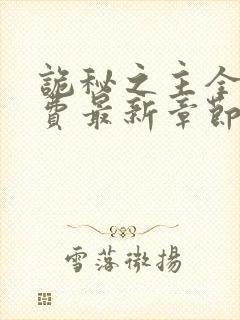 詭秘之主全
費最新章節
雪落微揚